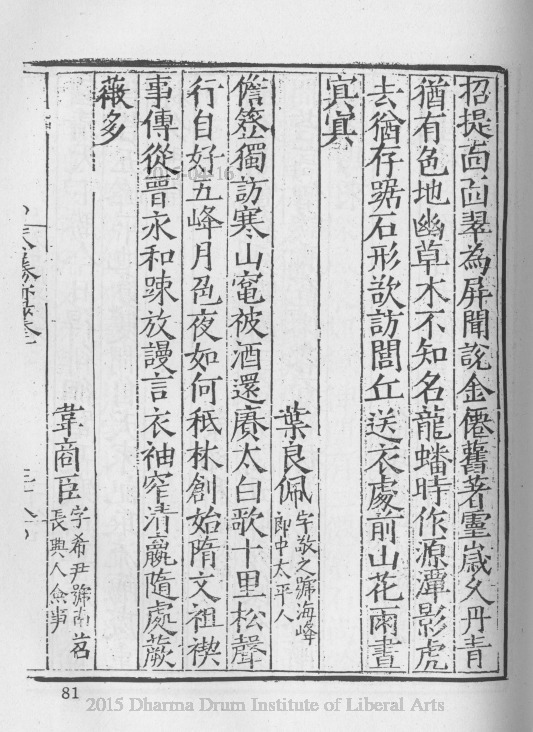 招提面面翠為屏聞說金僊舊著靈歲久丹青
猶有色地幽草木不知名龍蟠時作源潭影虎
去猶存踞石形欲訪閭丘送衣處前山花雨晝
冥冥
葉良佩字敬之號海峰郎中太平人
儋簦獨訪寒山竃被酒還賡太白歌十里松聲
行自好五峰月色夜如何秪林創始隋文祖禊
事傳從晉永和踈放謾言衣袖窄清羸隨處蕨
薇多
韋商臣字希尹號南苕長興人僉事
81
2015 Dharma Drum Institute of Liberal Arts